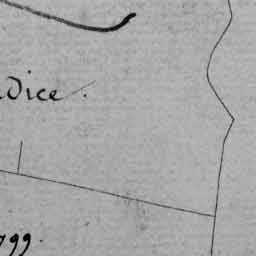 dice.
799.